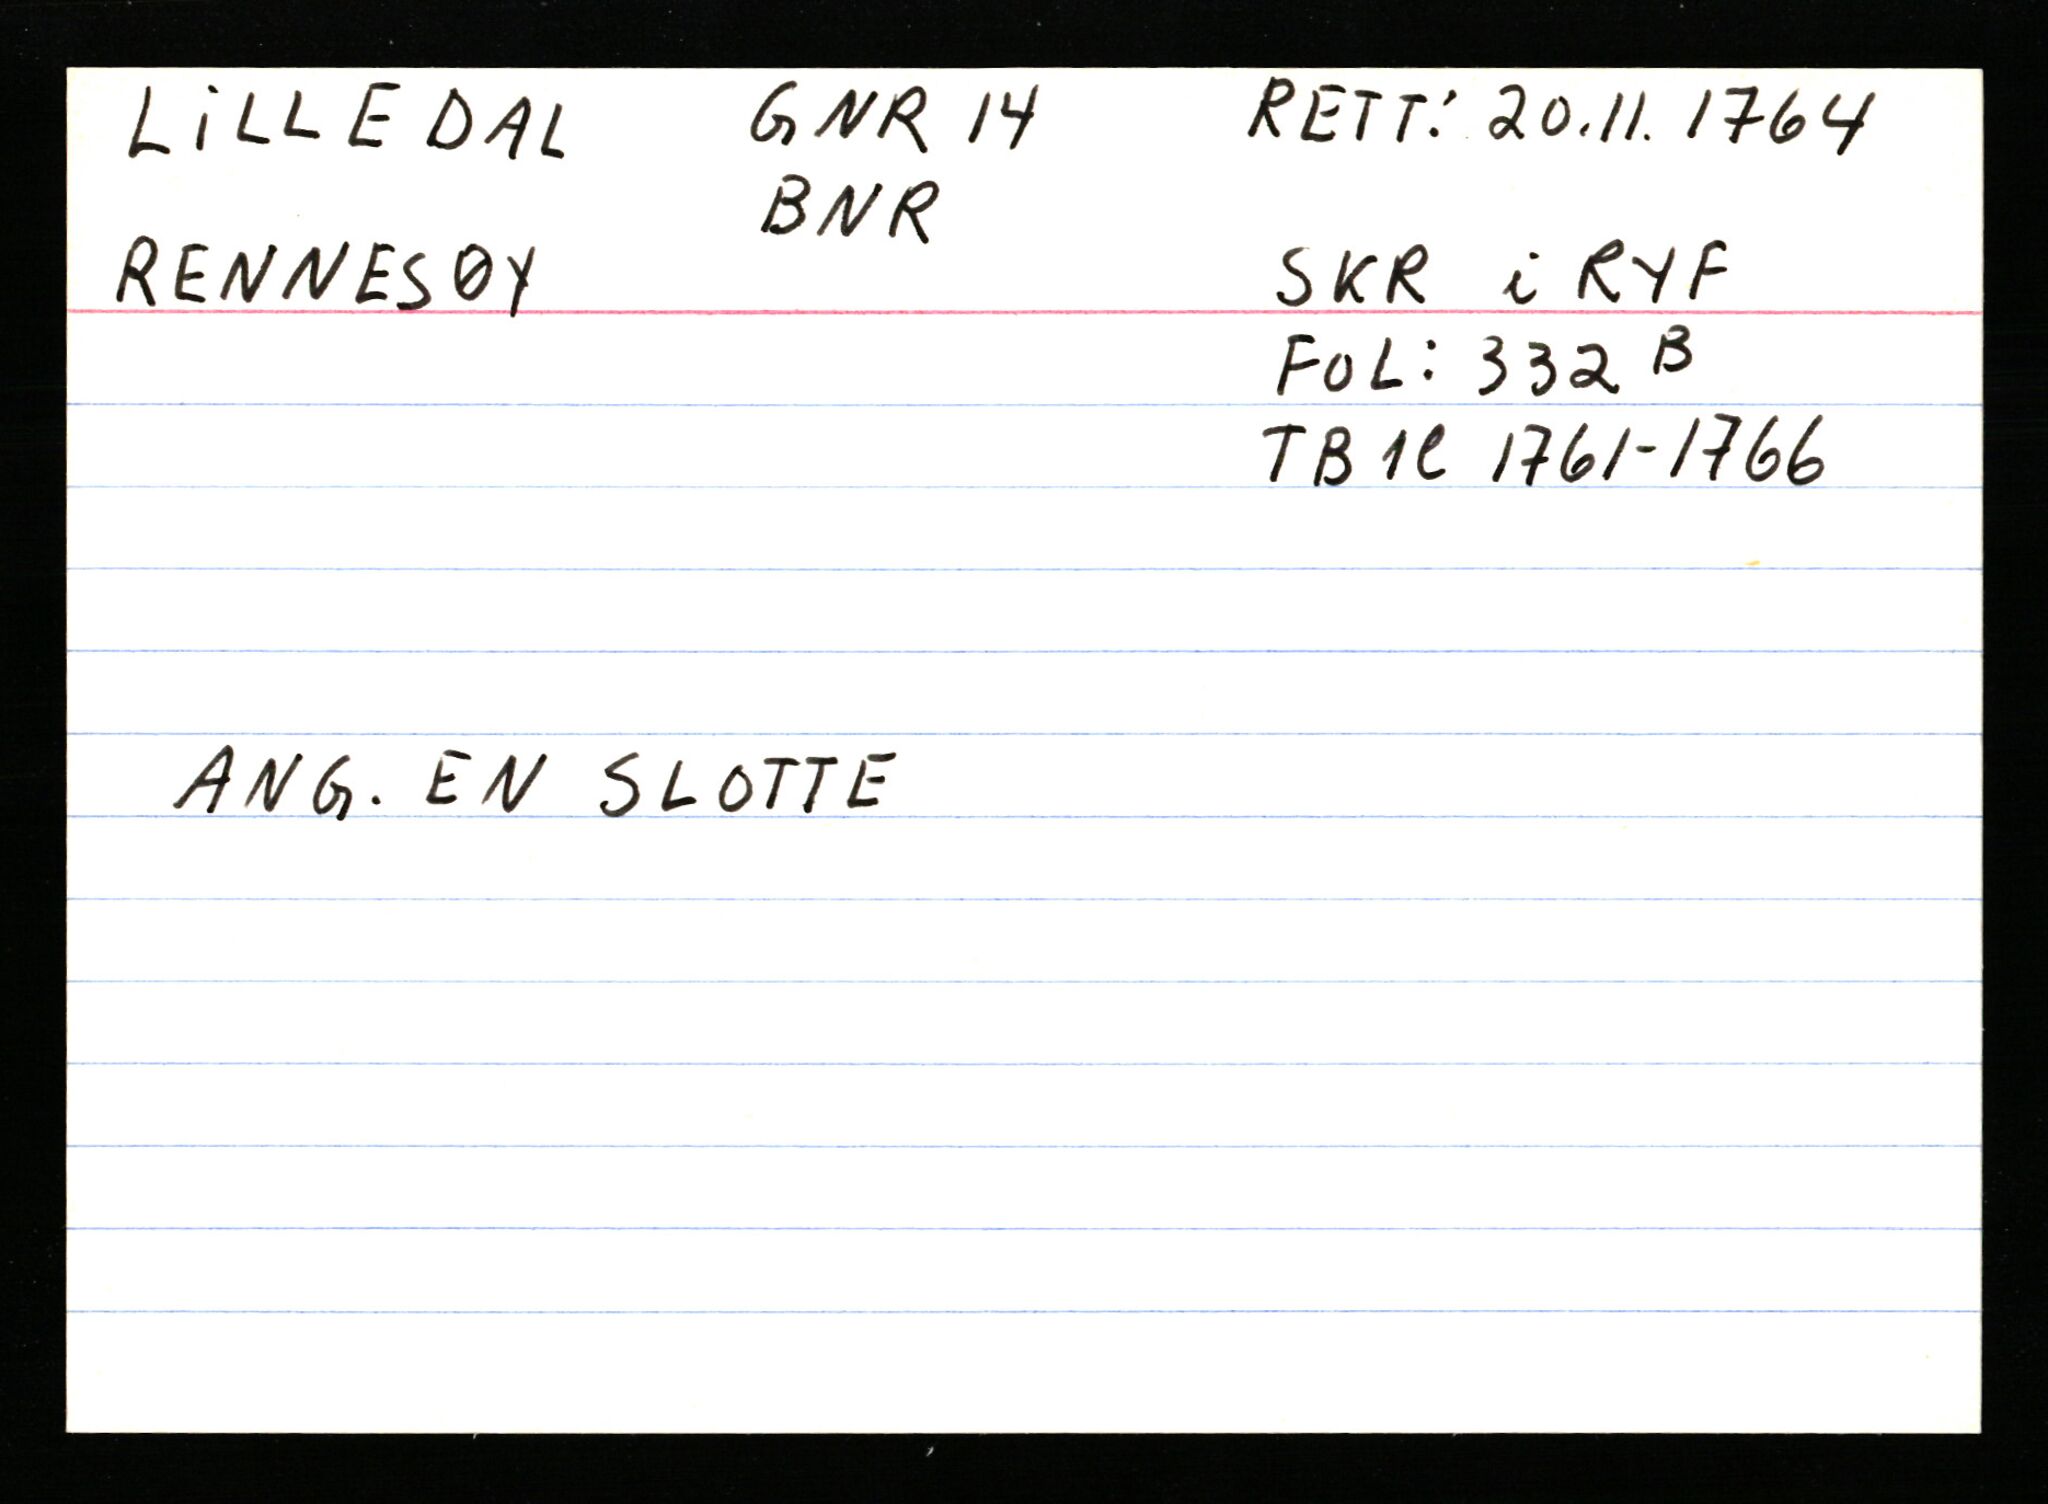 LiLLEDAL GNR 14 RETT: 20.11.1764
BNR
RENNESØY SKR i RYF
FOL: 332 B
TB 1C 1761-1766
ANG. EN SLOTTE